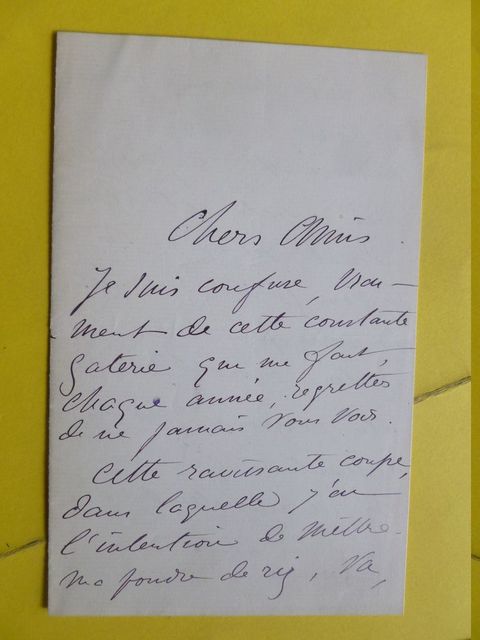 Chers Amis
Je suis confuse, vrai-
ment de cette constante
gaterie qui me fait,
chaque année, regretter
de ne jamais vous voir.
Cette ravissante coupe,
dans laquelle j'ai
l'intention de mettre
ma poudre de riz, va,